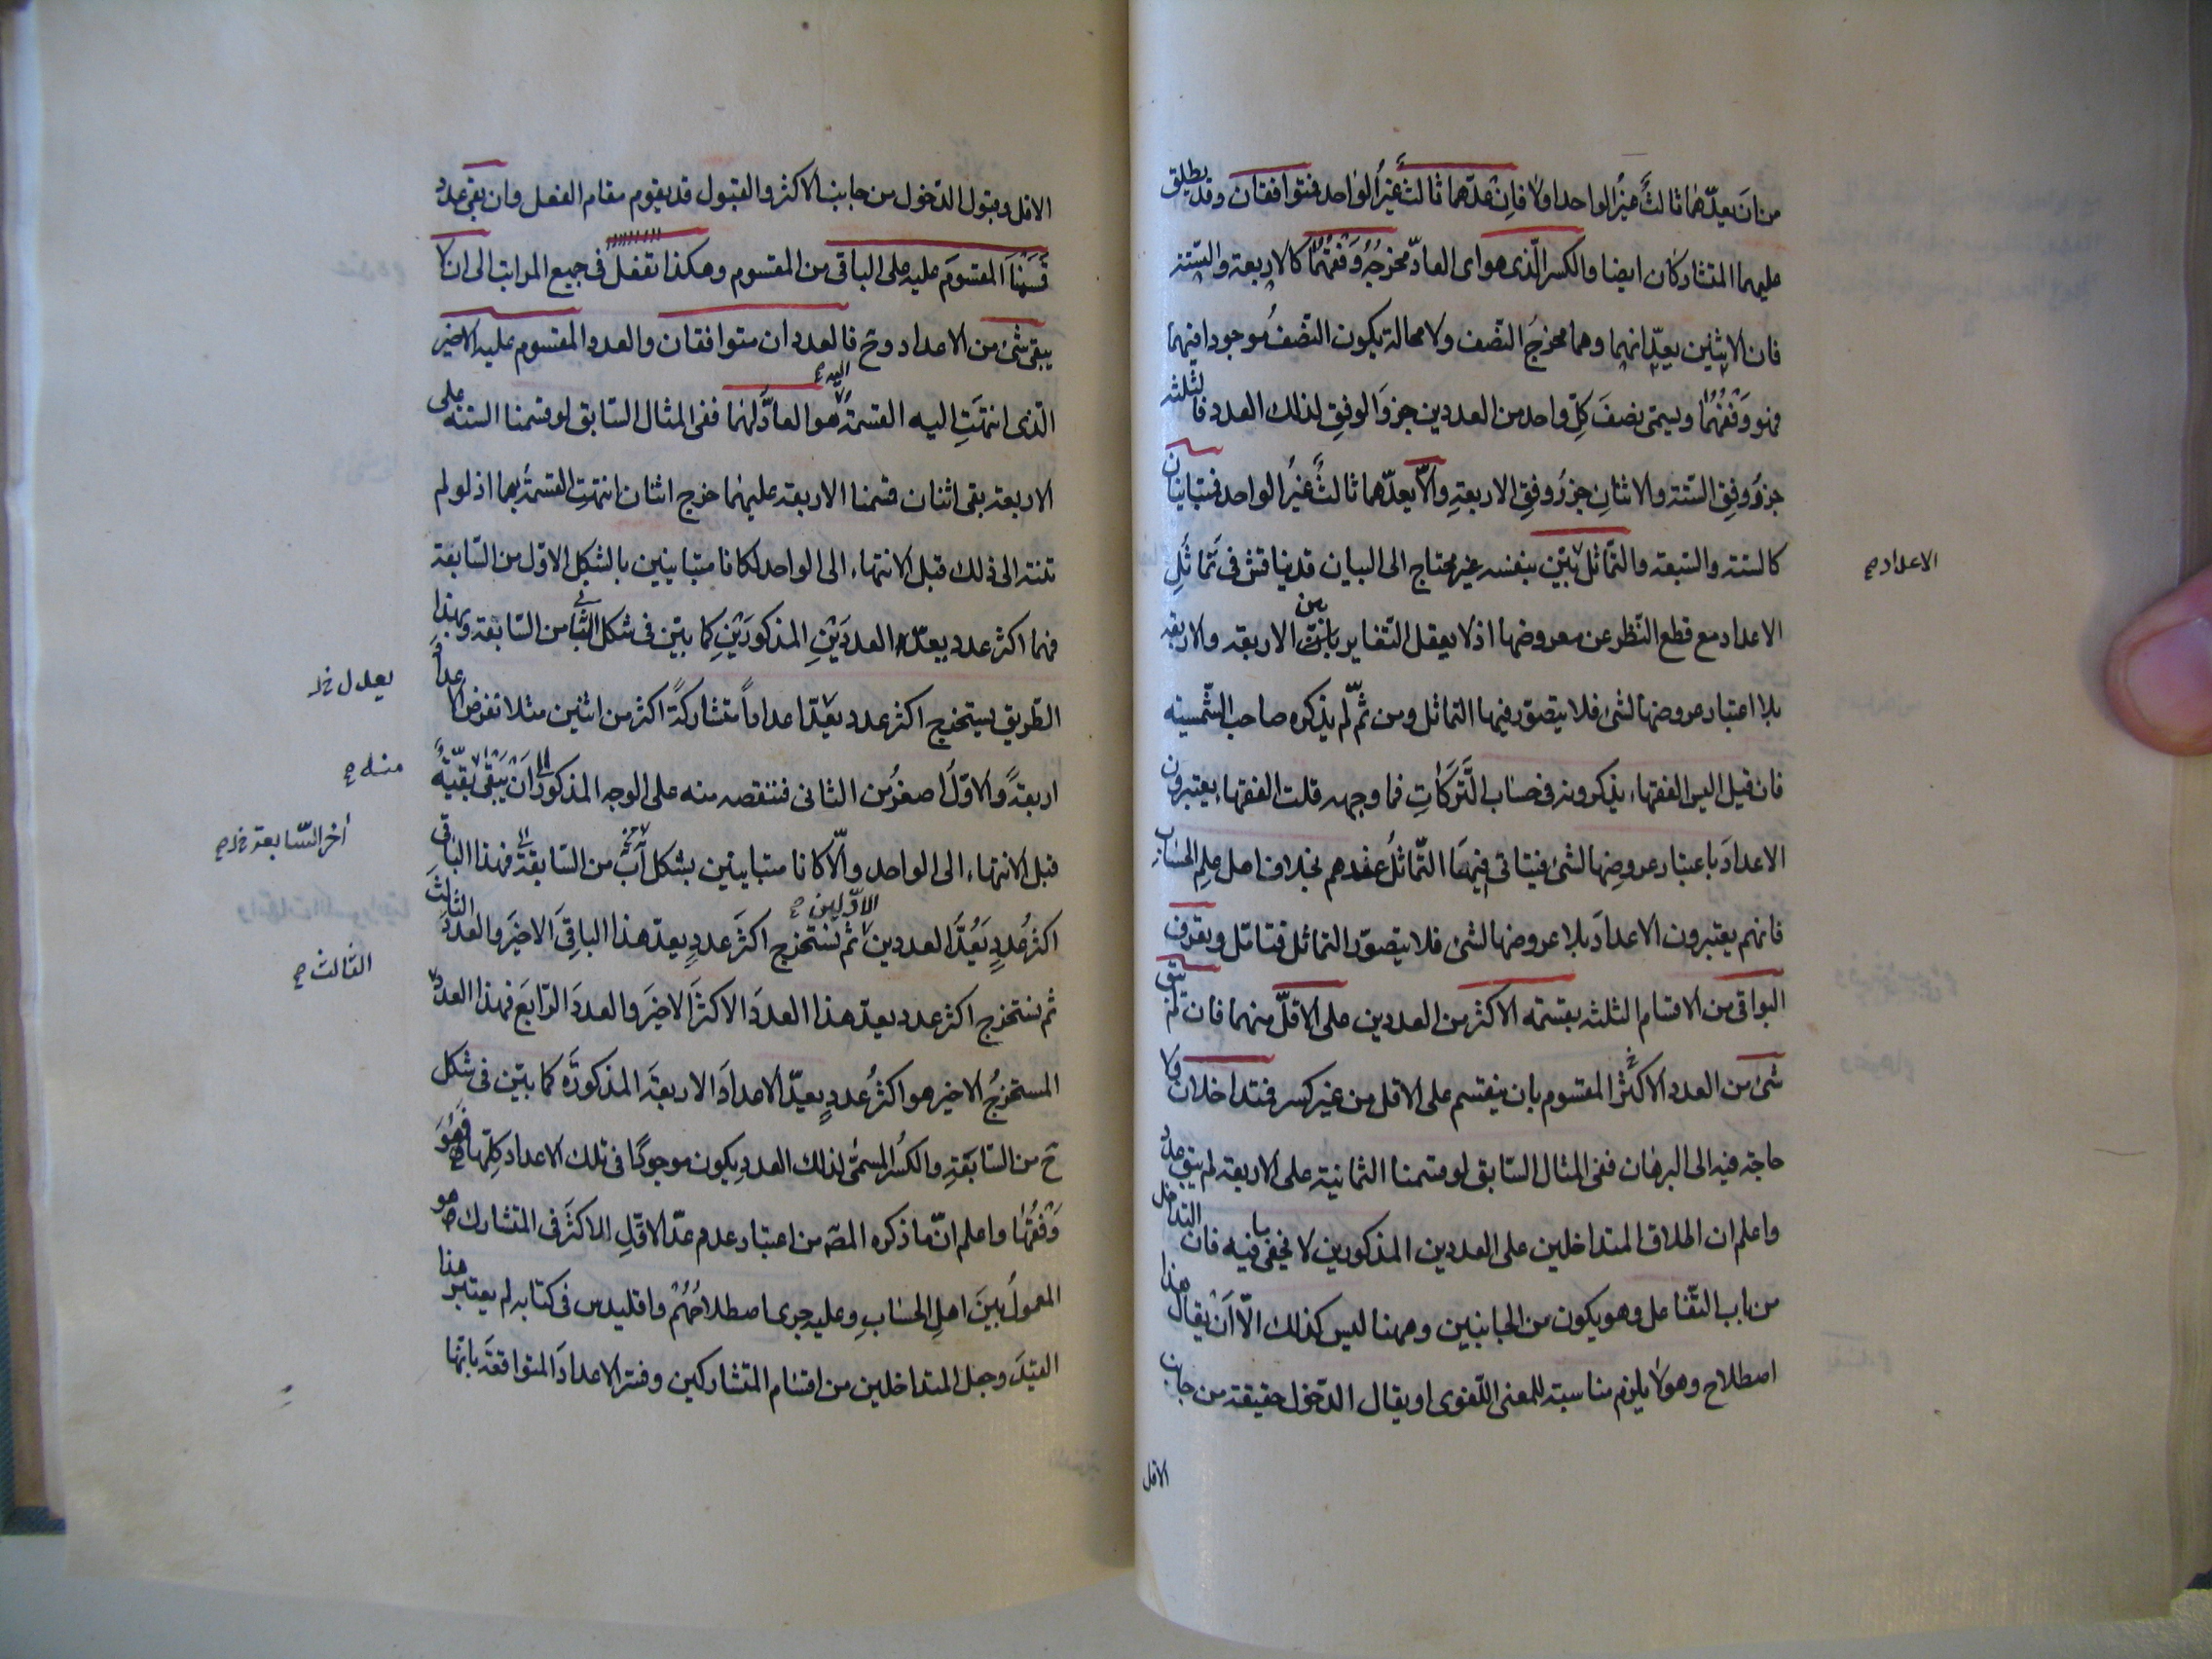 من ان يعدّهما ثالثٌ غيرُ الواحد او لا فاِن عدّهما ثالث غيرُ الواحد فمتوافقان وقد يطلق
عليهما المتشاركان ايضا والكسر الّذى هو اى العادّ مخرجُهُ وَفْقُهُمَا كالاربعة والستة
فان الاثنين يعدّانهما وهما مخرجُ النّصف ولا محالة يكون النّصفُ موجودا فيهما
فهو وَفْقُهُمَا ويسمّى نصفَ كلّ واحد من العددين جزءَ الوفقِ لذلك العدد فالثلثة
جزءُ وفقِ الستة والاثنان جزءُ وفقِ الاربعةِ والاّ يعدّهما ثالثٌ غيرُ الواحد فمتباينان
كالستة والسّبعة والتّماثل بَيّن بنفسه غير محتاج الى البيان قد يناقش فى تَماثُلِ
الاعداد مع قطع النّظر عن معروضها اذ لا يعقل التّغاير بين الاربعة والاربعة
بلا اعتبار عروضها لشئ فلا يتصوّر فيها التماثل ومن ثمّ لم يذكره صاحب الشّمسية
فان قيل اليس الفقهاء يذكرونه فى حساب التَّرَكَاتِ فما وجهه قلت الفقهاء يعتبرون
الاعدادَ باعتبار عروضِها لشئ فيتاتى فيهَا التّماثلُ عندهم بخلاف اهل علم الحساب
فانهم يعتبرون الاعدادَ بلا عروضها لشئ فلا يتصوّر التماثل فتامّل ويعرف
البواقى من الاقسام الثلثة بقسمة الاكثر من العددين على الاقلّ منهما فان لم يبق
شئ من العدد الاكثر المقسوم بان ينقسم على الاقل من غير كسر فمتداخلان ولا
حاجة فيه الى البرهان ففى المثال السّابق لو قسمنا الثمانية على الاربعة لم يبق عدد
واعلم ان اطلاق المتداخلين على العددين المذكورين لا يخفى ما فيه فان التداخل
من باب التّفاعل وهو يكون من الجانبين وههنا ليس كذلك الاّ اَنْ يقال هذا
اصطلاح وهو لا يلزم مناسبته للمعنى اللّغوى او يقال الدّخول حقيقة من جانب
الاقل
الاعداد صح
الاقل وقبول الدّخول من جانب الاكثر والقبول قد يقوم مقام الفعل وان بقى عدد
قَسَمْنَا المقسومَ عليه على الباقى من المقسوم وهكذا تفعل فى جميع المراتب الى ان لا
يبقى شئ من الاعداد وح فالعددان متوافقان والعدد المقسوم عليه الاخير
الّذى انتهَتِ اليه القسمةُ هو العادّ لهما ففى المثال السّابق لو قسمنا الستة على
الاربعة بقى اثنان قسمنا الاربعة عليهما خرج اثنان انتهت القسمةُ بهما اذ لو لم
تنته الى ذلك قبل الانتهاء الى الواحد لكانا متباينين بالشكل الاوّل من السّابعة
فهما اكثر عدد يعدّ العددَيْنِ المذكورَيْنِ كما بيّن فى شكل الثانى من السّابعة وبهذا
الطّريق يستخرج اكثر عدد يعدّ اعداداً متشاركةً اكثر من اثنين مثلا نفرض اعدادًا
اربعةً والاوّلُ اصغرُ من الثانى فننقصه منه على الوجه المذكور الى اَنْ يَبْقَى بقيّةٌ
قبل الانتهاء الى الواحد والاّ كانا متباينين بشكل آ من السّابعة فهذا الباقى
اكثرُ عددٍ يَعُدُّ العددين الاوّلين ثم نستخرج اكثرَ عددٍ يعدّ هذا الباقِىَ الاخيرَ والعددَ الثالثَ
ثم نستخرج اكثر عدد يعدّ هذا العددَ الاكثرَ الاخيرَ والعددَ الرّابعَ فهذا العدد
المستخرجُ الاخير هو اكثرُ عددٍ يعدّ الاعدادَ الاربعةَ المذكورَة كما بيّن فى شكل
ج من السّابعَةِ والكسرُ المسمّى لذلك العددِ يكون موجودًا فى تلك الاعداد كلّها فَهُوَ
وَفْقُهَا واعلم انّ ما ذكره المصّ من اعتبار عدم عدّ الاقلّ الاكثَر فى المتشارك هو
المعمولُ بينَ اهلِ الحسَابِ وعليه جرى اصطلاحُهُمْ واقليدس فى كتابه لم يعتبر هذا
القيدَ وجعل المتداخلين من اقسَام المتشاركين وفسّر الاعدادَ المتوافقةَ بانّها
يعدل خ
منه صح
آخر السّابعة صح
الثالث صح